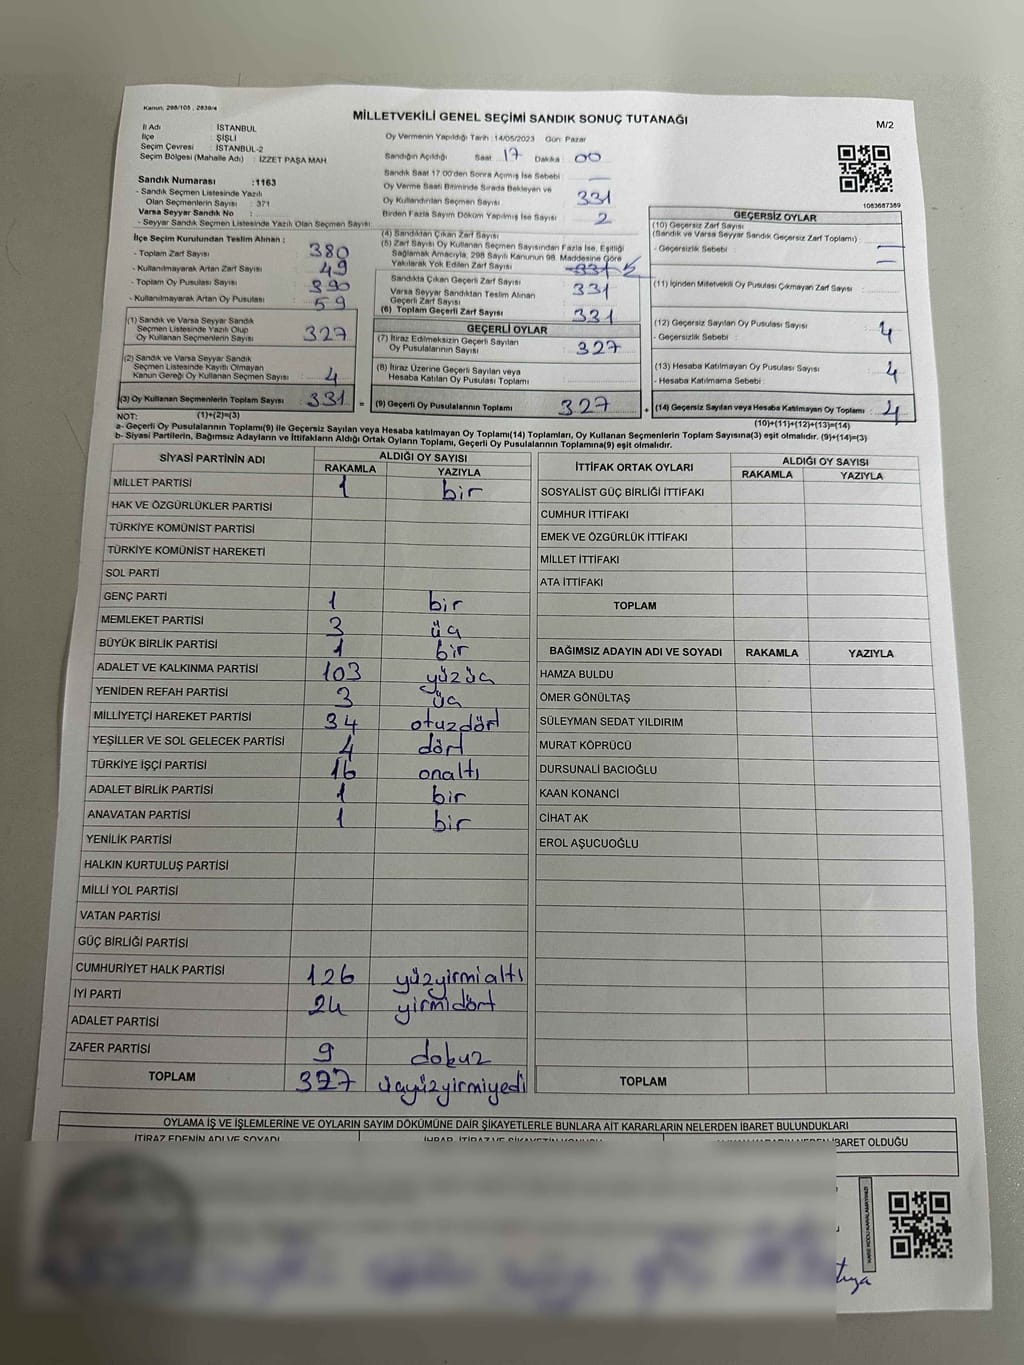 Kanun, 298/105 , 2839/4
MİLLETVEKİLİ GENEL SEÇİMİ SANDIK SONUÇ TUTANAĞI
M/2
İl Adı : İSTANBUL
İlçe : ŞİŞLİ
Seçim Çevresi : İSTANBUL-2
Seçim Bölgesi (Mahalle Adı) : İZZET PAŞA MAH
Sandık Numarası :1163
- Sandık Seçmen Listesinde Yazılı
Olan Seçmenlerin Sayısı : 371
Varsa Seyyar Sandık No :
- Seyyar Sandık Seçmen Listesinde Yazılı Olan Seçmen Sayısı :
İlçe Seçim Kurulundan Teslim Alınan ;
- Toplam Zarf Sayısı : 380
- Kullanılmayarak Artan Zarf Sayısı : 49
- Toplam Oy Pusulası Sayısı : 390
- Kullanılmayarak Artan Oy Pusulası : 59
(1) Sandık ve Varsa Seyyar Sandık
Seçmen Listesinde Yazılı Olup
Oy Kullanan Seçmenlerin Sayısı : 327
(2) Sandık ve Varsa Seyyar Sandık
Seçmen Listesinde Kayıtlı Olmayan
Kanun Gereği Oy Kullanan Seçmen Sayısı : 4
(3) Oy Kullanan Seçmenlerin Toplam Sayısı : 331 =
Oy Vermenin Yapıldığı Tarih :14/05/2023 Gün: Pazar
Sandığın Açıldığı Saat : 17 Dakika : 00
Sandık Saat 17.00'den Sonra Açılmış İse Sebebi : —
Oy Verme Saati Bitiminde Sırada Bekleyen ve
Oy Kullandırılan Seçmen Sayısı : 331
Birden Fazla Sayım Döküm Yapılmış İse Sayısı : 2
(4) Sandıktan Çıkan Zarf Sayısı
(5) Zarf Sayısı Oy Kullanan Seçmen Sayısından Fazla İse, Eşitliği
Sağlamak Amacıyla, 298 Sayılı Kanunun 98. Maddesine Göre
Yakılarak Yok Edilen Zarf Sayısı : 331
Sandıkta Çıkan Geçerli Zarf Sayısı : 331
Varsa Seyyar Sandıktan Teslim Alınan
Geçerli Zarf Sayısı
(6) Toplam Geçerli Zarf Sayısı : 331
GEÇERLİ OYLAR
(7) İtiraz Edilmeksizin Geçerli Sayılan
Oy Pusulalarının Sayısı : 327
(8) İtiraz Üzerine Geçerli Sayılan veya
Hesaba Katılan Oy Pusulası Toplamı :
(9) Geçerli Oy Pusulalarının Toplamı : 327 +
1083687389
GEÇERSİZ OYLAR
(10) Geçersiz Zarf Sayısı
(Sandık ve Varsa Seyyar Sandık Geçersiz Zarf Toplamı) : —
- Geçersizlik Sebebi : —
(11) İçinden Milletvekili Oy Pusulası Çıkmayan Zarf Sayısı :
(12) Geçersiz Sayılan Oy Pusulası Sayısı : 4
- Geçersizlik Sebebi :
(13) Hesaba Katılmayan Oy Pusulası Sayısı : 4
- Hesaba Katılmama Sebebi :
(14) Geçersiz Sayılan veya Hesaba Katılmayan Oy Toplamı : 4
NOT: (1)+(2)=(3)
(10)+(11)+(12)+(13)=(14)
a- Geçerli Oy Pusulalarının Toplamı(9) ile Geçersiz Sayılan veya Hesaba katılmayan Oy Toplamı(14) Toplamları, Oy Kullanan Seçmenlerin Toplam Sayısına(3) eşit olmalıdır. (9)+(14)=(3)
b- Siyasi Partilerin, Bağımsız Adayların ve İttifakların Aldığı Ortak Oyların Toplamı, Geçerli Oy Pusulalarının Toplamına(9) eşit olmalıdır.
SİYASİ PARTİNİN ADI ALDIĞI OY SAYISI
RAKAMLA YAZIYLA
MİLLET PARTİSİ 1 bir
HAK VE ÖZGÜRLÜKLER PARTİSİ
TÜRKİYE KOMÜNİST PARTİSİ
TÜRKİYE KOMÜNİST HAREKETİ
SOL PARTİ
GENÇ PARTİ 1 bir
MEMLEKET PARTİSİ 3 üç
BÜYÜK BİRLİK PARTİSİ 1 bir
ADALET VE KALKINMA PARTİSİ 103 yüzüç
YENİDEN REFAH PARTİSİ 3 üç
MİLLİYETÇİ HAREKET PARTİSİ 34 otuzdört
YEŞİLLER VE SOL GELECEK PARTİSİ 4 dört
TÜRKİYE İŞÇİ PARTİSİ 16 onaltı
ADALET BİRLİK PARTİSİ 1 bir
ANAVATAN PARTİSİ 1 bir
YENİLİK PARTİSİ
HALKIN KURTULUŞ PARTİSİ
MİLLİ YOL PARTİSİ
VATAN PARTİSİ
GÜÇ BİRLİĞİ PARTİSİ
CUMHURİYET HALK PARTİSİ 126 yüzyirmialtı
İYİ PARTİ 24 yirmidört
ADALET PARTİSİ
ZAFER PARTİSİ 9 dokuz
TOPLAM 327 üçyüzyirmiyedi
İTTİFAK ORTAK OYLARI ALDIĞI OY SAYISI
RAKAMLA YAZIYLA
SOSYALİST GÜÇ BİRLİĞİ İTTİFAKI
CUMHUR İTTİFAKI
EMEK VE ÖZGÜRLÜK İTTİFAKI
MİLLET İTTİFAKI
ATA İTTİFAKI
TOPLAM
BAĞIMSIZ ADAYIN ADI VE SOYADI RAKAMLA YAZIYLA
HAMZA BULDU
ÖMER GÖNÜLTAŞ
SÜLEYMAN SEDAT YILDIRIM
MURAT KÖPRÜCÜ
DURSUNALİ BACIOĞLU
KAAN KONANCİ
CİHAT AK
EROL AŞUCUOĞLU
TOPLAM
OYLAMA İŞ VE İŞLEMLERİNE VE OYLARIN SAYIM DÖKÜMÜNE DAİR ŞİKAYETLERLE BUNLARA AİT KARARLARIN NELERDEN İBARET BULUNDUKLARI
İTİRAZ EDENİN ADI VE SOYADI
İBARET OLDUĞU